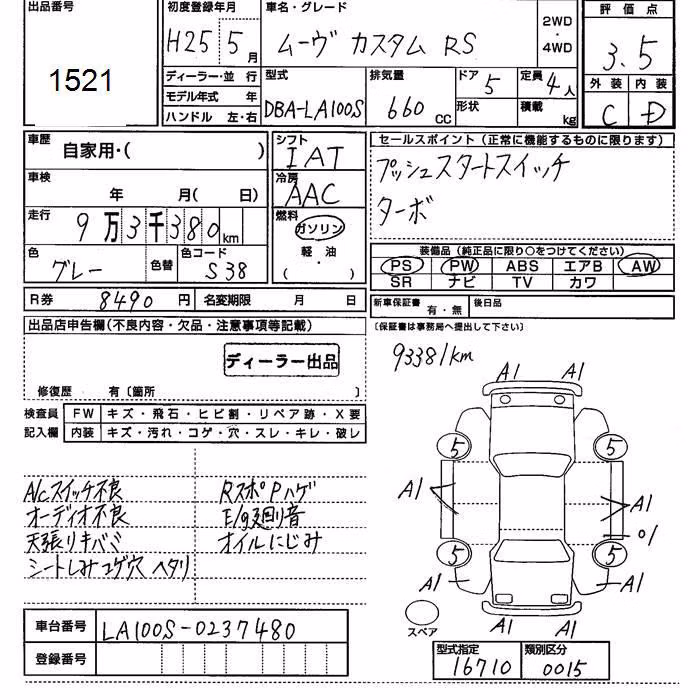 出品番号
1521
初度登録年月
H25 5月
車名・グレード
ムーヴ カスタム RS
2WD
・
4WD
評価点
3.5
外装 内装
C D
ディーラー・並行
モデル年式 年
ハンドル 左・右
型式
DBA-LA100S
排気量
660 CC
ドア 5
形状
定員 4人
積載 kg
車歴
自家用・( )
車検
年 月(日)
走行
9万3千380km
色
グレー
色替
色コード
S38
シフト
IAT
冷房
AAC
燃料
ガソリン
軽・油
( ・ )
セールスポイント(正常に機能するものに限ります)
プッシュスタートスイッチ
ターボ
装備品(純正品に限り○をつけてください)
PS PW ABS エアB AW
SR ナビ TV カワ
R券 8490円 名変期限 月 日
新車保証書 有・無 後日品
(保証書は事務局へ提出して下さい)
出品店申告欄(不良内容・欠品・注意事項等記載)
ディーラー出品
修復歴 有〔箇所 〕
93381km
検査員 FW キズ・飛石・ヒビ割・リペア跡・X要
記入欄 内装 キズ・汚れ・コゲ・穴・スレ・キレ・破レ
A/Cスイッチ不良 RスポPハゲ
オーディオ不良 E/g廻り音
天張りキバミ オイルにじみ
シートしみコゲ穴 ヘタリ
A1 A1
5 5
A1 A1
01
5 5
A1 A1
A1 A1
スペア
車台番号 LA100S-0237480
登録番号
型式指定 類別区分
16710 0015